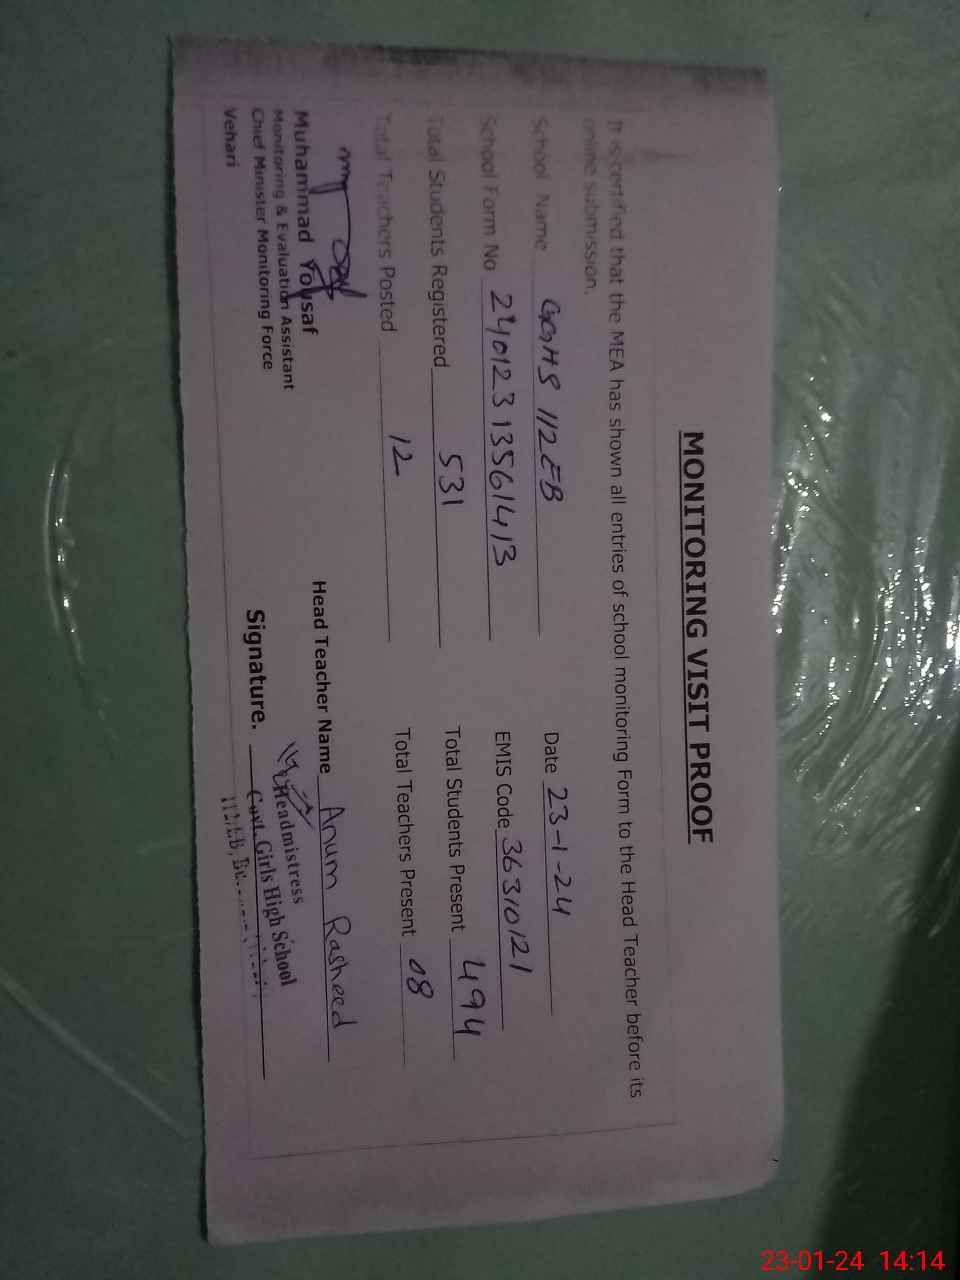 MONITORING VISIT PROOF
It is certified that the MEA has shown all entries of school monitoring Form to the Head Teacher before its
online submission.
School Name GGHS 112EB Date 23-1-24
School Form No 240123 13561413 EMIS Code 36310121
Total Students Registered 531 Total Students Present 494
Total Teachers Posted 12 Total Teachers Present 08
Muhammad Yousaf
Monitoring & Evaluation Assistant
Chief Minister Monitoring Force
Vehari
Head Teacher Name Anum Rasheed
Signature.
Headmistress
Govt. Girls High School
112/EB,
23-01-24 14:14